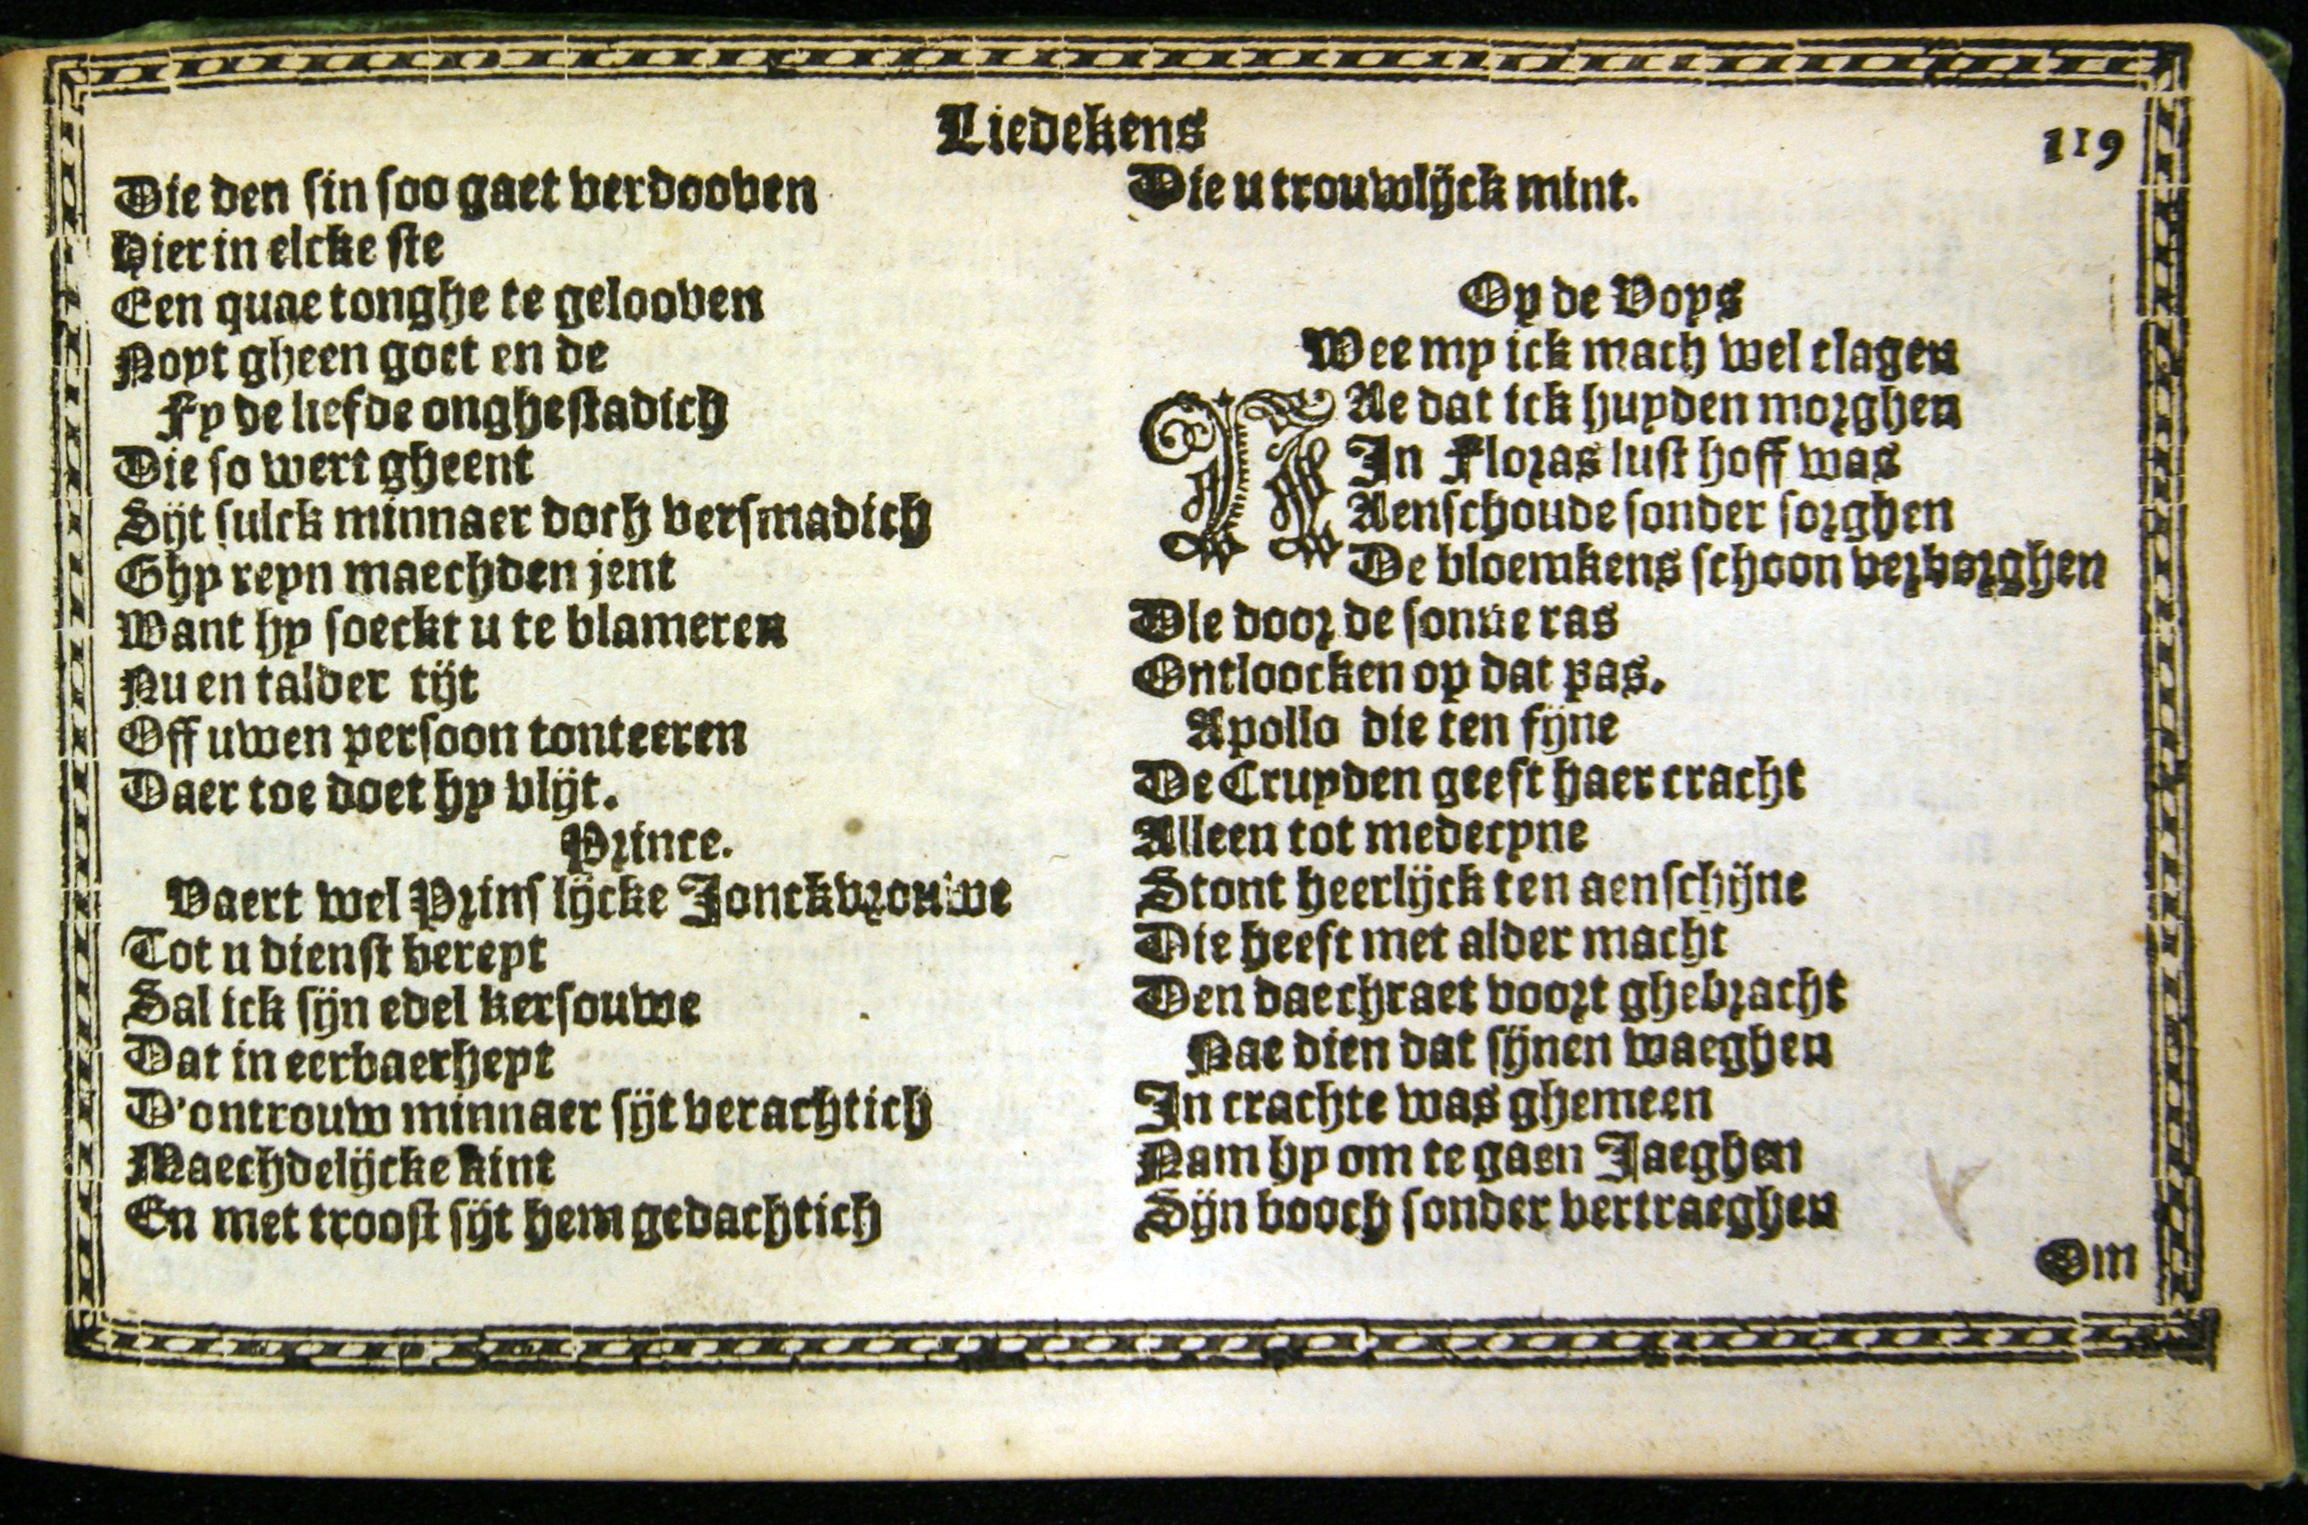 Liedekens
119
Die den sin soo gaet verdooven
Hier in elcke ste
Een quae tonghe te gelooven
Noyt gheen goet en de
Fy de liefde onghestadich
Die so wert gheent
Sijt sulck minnaer doch versmadich
Ghy reyn maechden jent
Want hy soeckt u te blameren
Nu en talder tijt
Off uwen persoon tonteeren
Daer toe doet hy vlijt.
Prince.
Vaert wel Prins lijcke Jonckvrouwe
Tot u dienst bereyt
Sal ick sijn edel kersouwe
Dat in eerbaerheyt
D'ontrouw minnaer sijt verachtich
Maechdelijcke kint
En met troost sijt hem gedachtich
Die u trouwlijck mint.
Op de Voys
Wee my ick mach wel clagen
NAe dat ick huyden morghen
In Floras lust hoff was
Aenschoude sonder sorghen
De bloemkens schoon verborghen
Die door de sonne ras
Ontloocken op dat pas.
Apollo die ten fijne
De Cruyden geeft haer cracht
Alleen tot medecyne
Stont heerlijck ten aenschijne
Die heeft met alder macht
Den daechraet voort ghebracht
Nae dien dat sijnen waeghen
In crachte was ghemeen
Nam hy om te gaen Jaeghen
Sijn booch sonder vertraeghen
Om